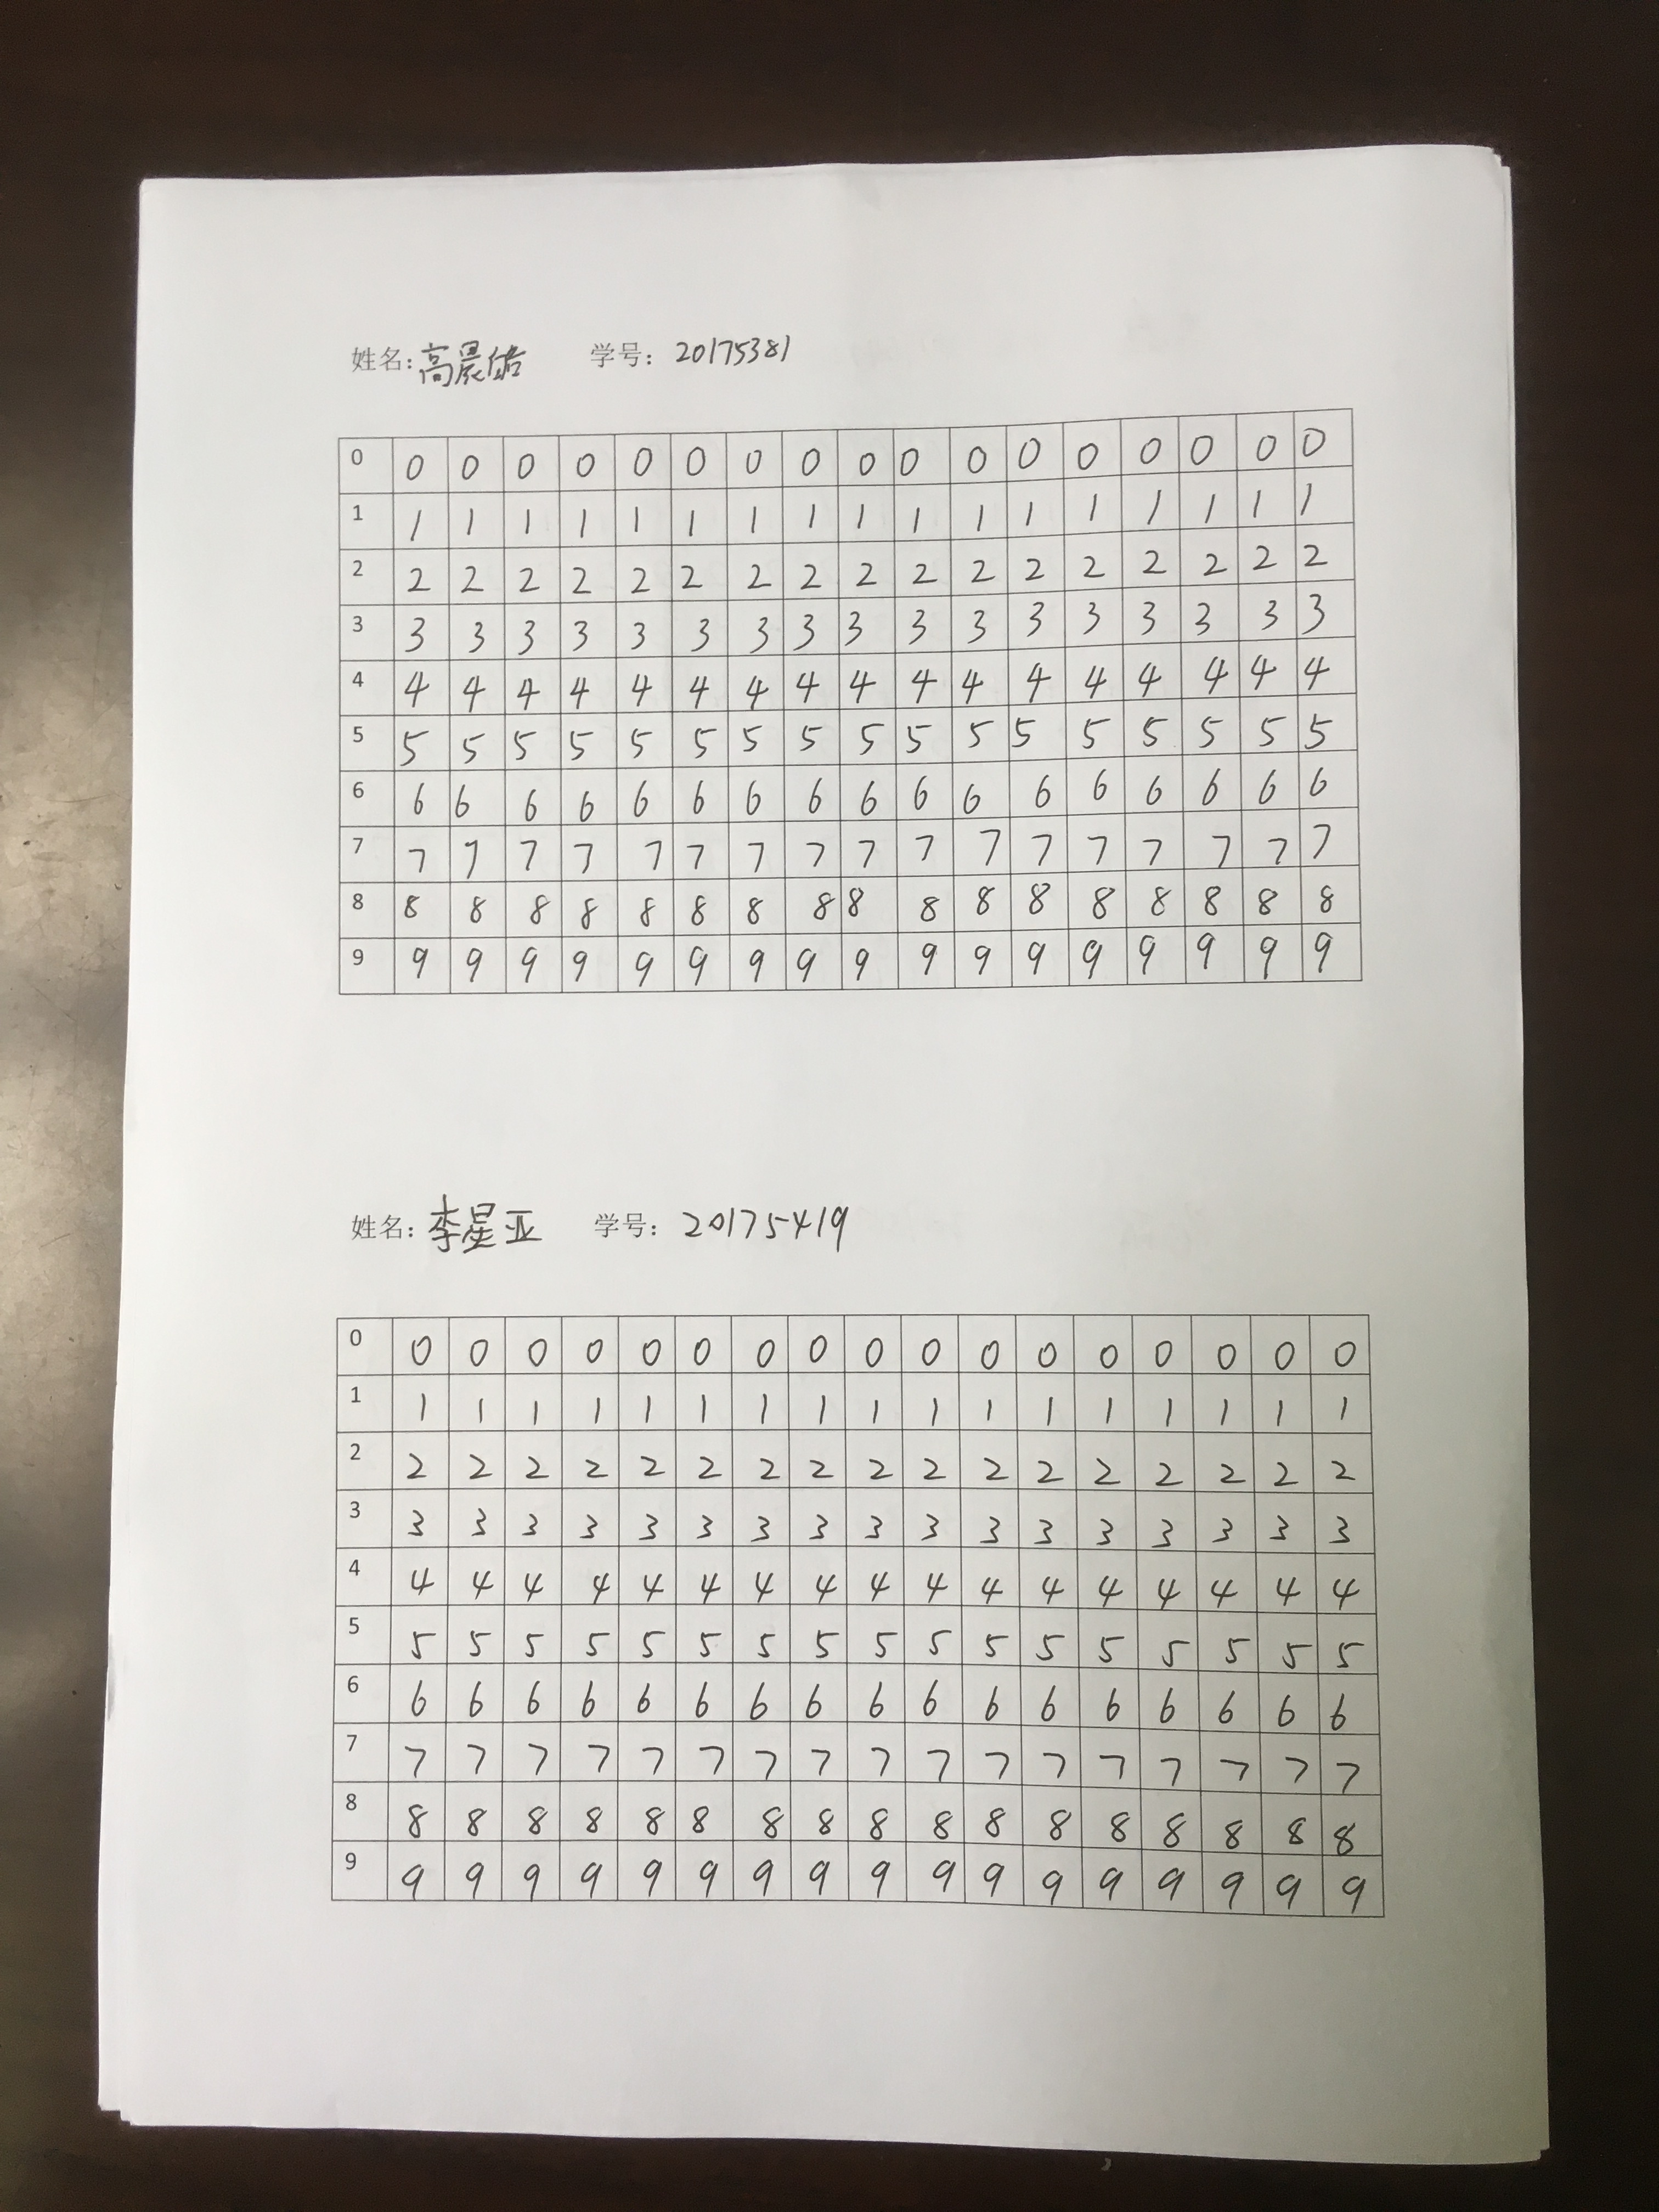 姓名：高晨佶 学号：20175381
0 0 0 0 0 0 0 0 0 0 0 0 0 0 0 0 0 0
1 1 1 1 1 1 1 1 1 1 1 1 1 1 1 1 1 1
2 2 2 2 2 2 2 2 2 2 2 2 2 2 2 2 2 2
3 3 3 3 3 3 3 3 3 3 3 3 3 3 3 3 3 3
4 4 4 4 4 4 4 4 4 4 4 4 4 4 4 4 4 4
5 5 5 5 5 5 5 5 5 5 5 5 5 5 5 5 5 5
6 6 6 6 6 6 6 6 6 6 6 6 6 6 6 6 6 6
7 7 7 7 7 7 7 7 7 7 7 7 7 7 7 7 7 7
8 8 8 8 8 8 8 8 8 8 8 8 8 8 8 8 8 8
9 9 9 9 9 9 9 9 9 9 9 9 9 9 9 9 9 9
姓名：李星亚 学号：20175419
0 0 0 0 0 0 0 0 0 0 0 0 0 0 0 0 0 0
1 1 1 1 1 1 1 1 1 1 1 1 1 1 1 1 1 1
2 2 2 2 2 2 2 2 2 2 2 2 2 2 2 2 2 2
3 3 3 3 3 3 3 3 3 3 3 3 3 3 3 3 3 3
4 4 4 4 4 4 4 4 4 4 4 4 4 4 4 4 4 4
5 5 5 5 5 5 5 5 5 5 5 5 5 5 5 5 5 5
6 6 6 6 6 6 6 6 6 6 6 6 6 6 6 6 6 6
7 7 7 7 7 7 7 7 7 7 7 7 7 7 7 7 7 7
8 8 8 8 8 8 8 8 8 8 8 8 8 8 8 8 8 8
9 9 9 9 9 9 9 9 9 9 9 9 9 9 9 9 9 9